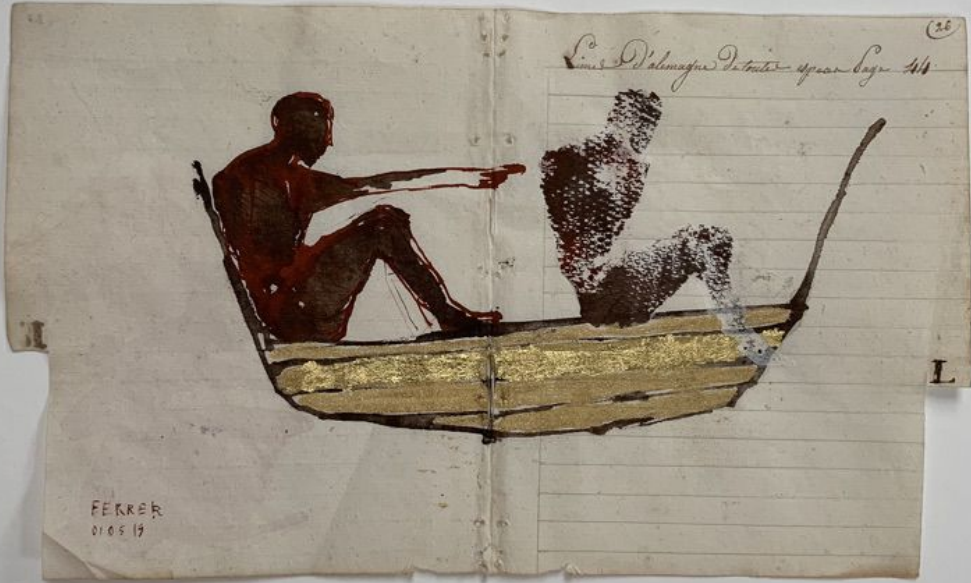 (26
Limes d'alemagne de toutes espece Page 44
L
FERRER
01 05 19